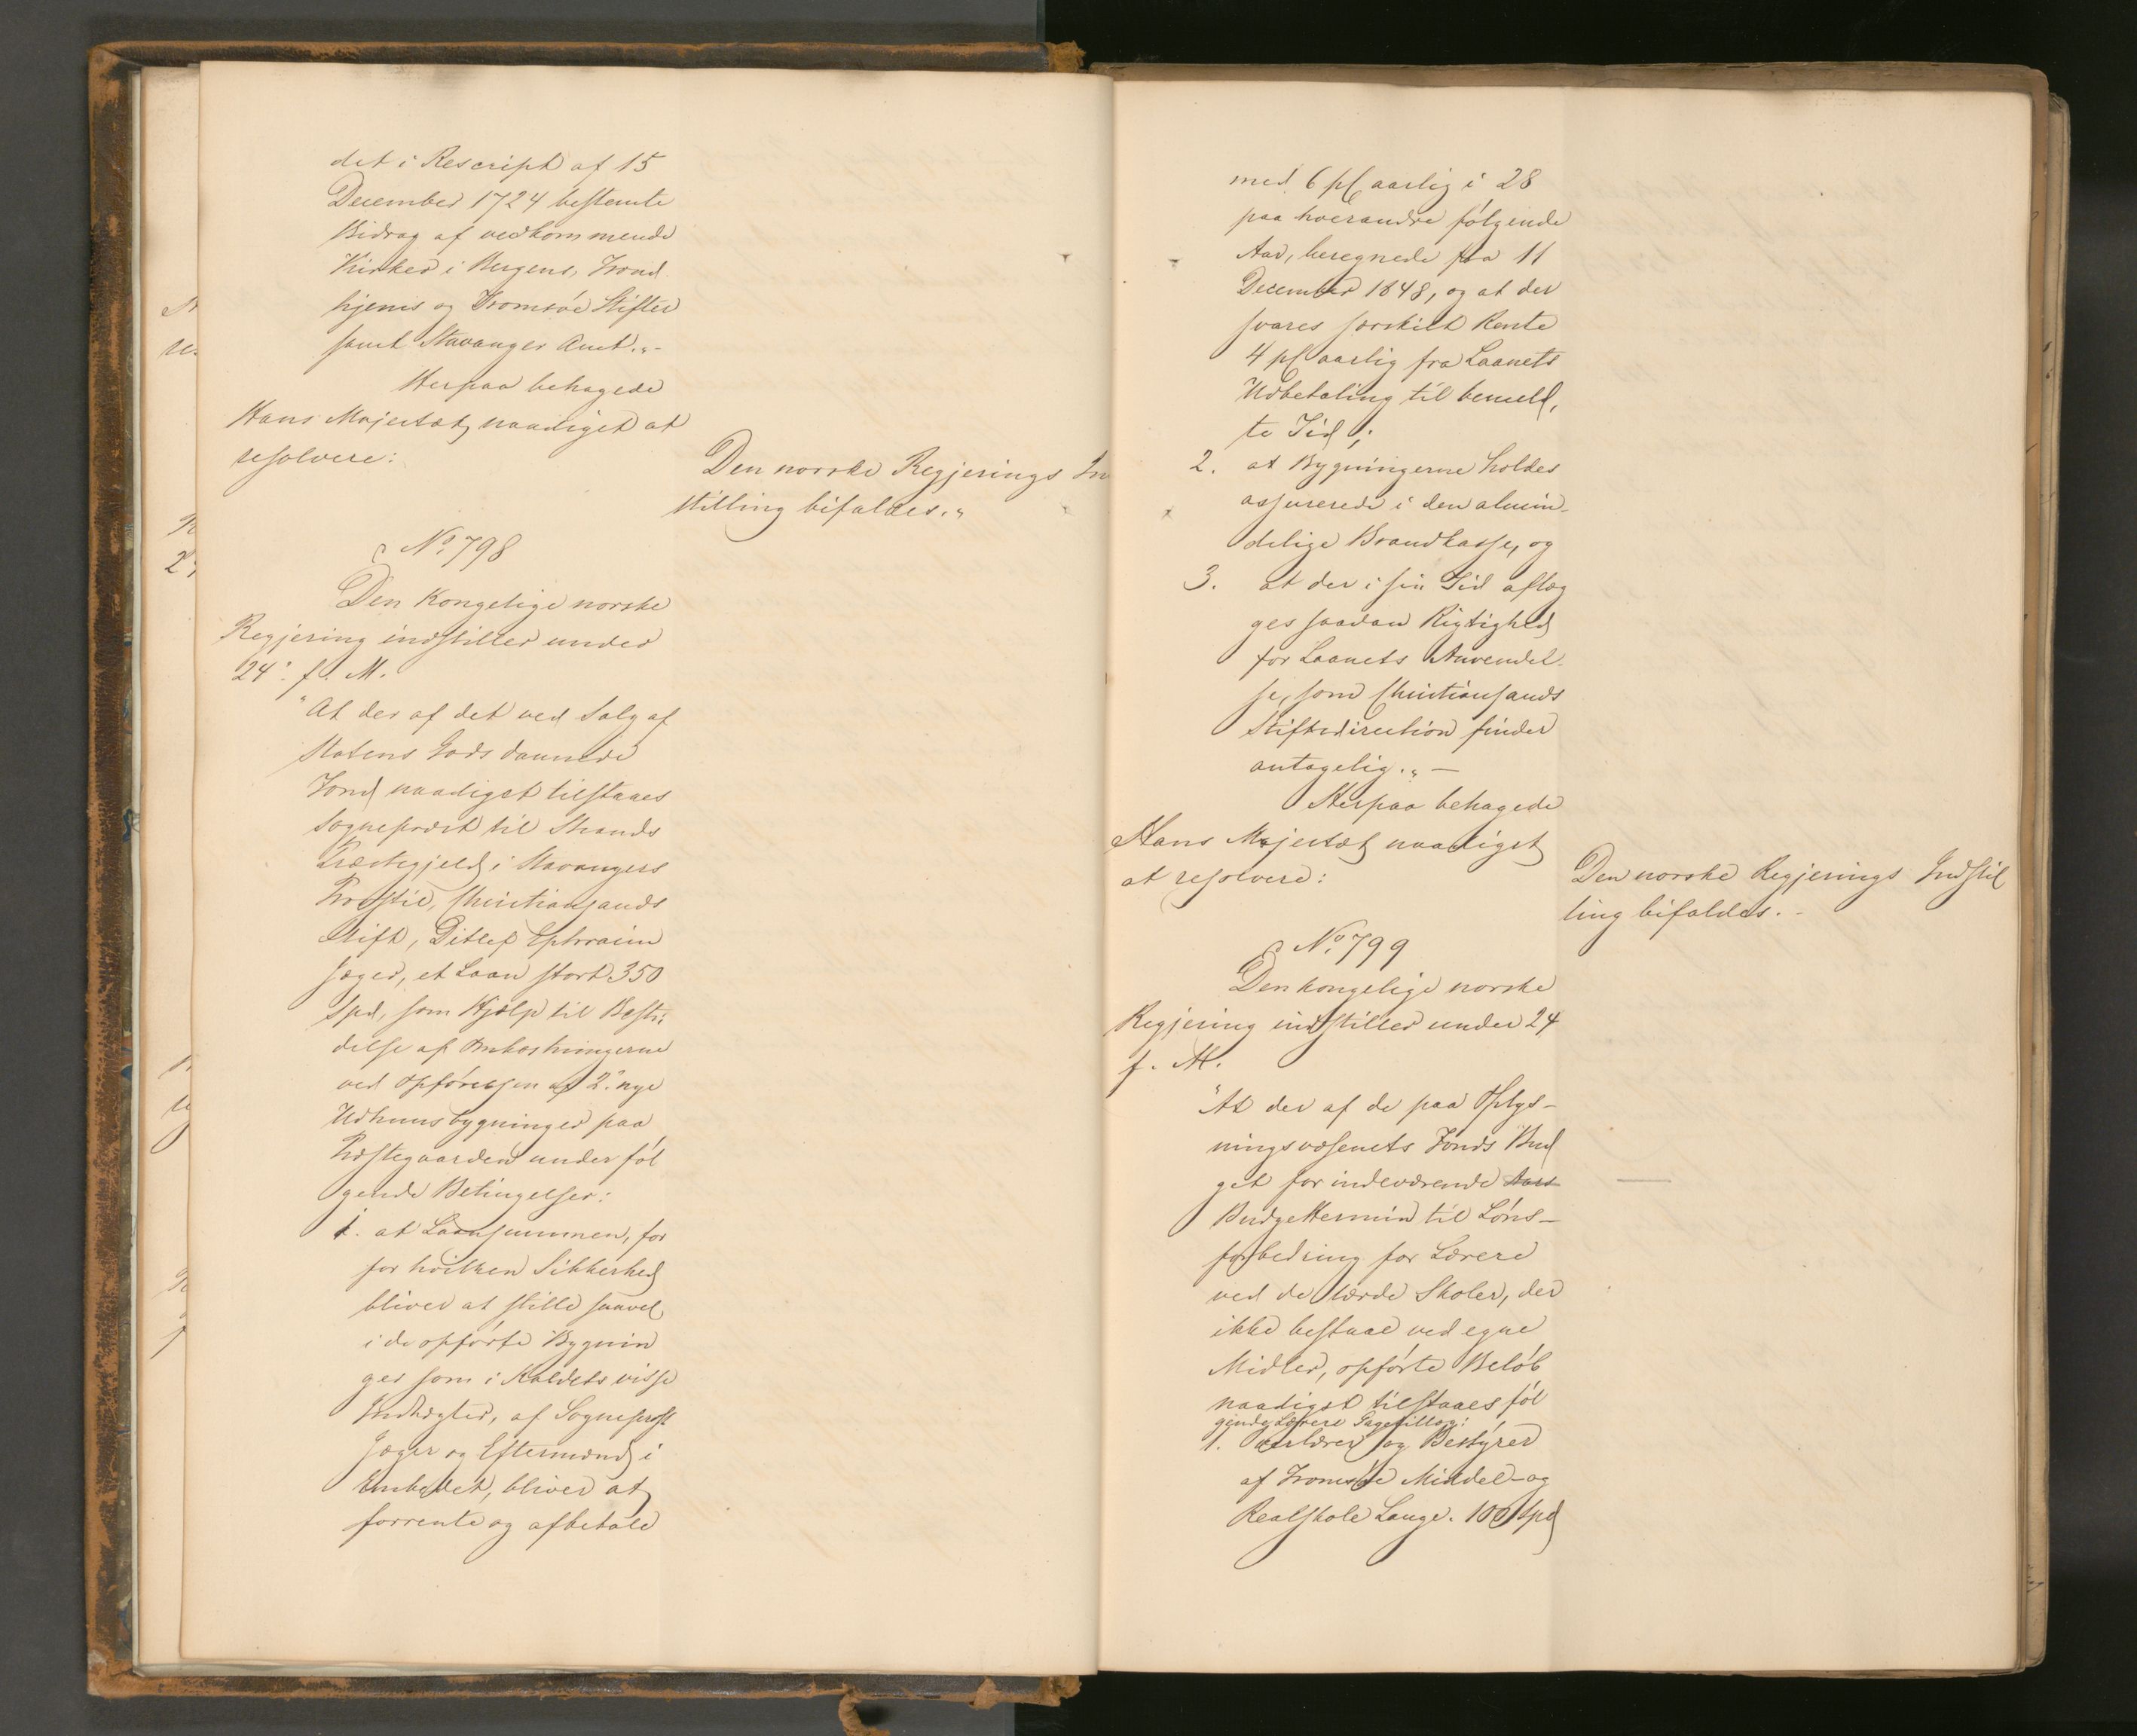 det i Rescript af 15
December 1724 bestemte
Bidrag af vedkommende
Kirker i Bergens, Trond
hjems og Tromsøe Stifter
samt Stavanger Amt.„-
Herpaa behagede
Hans Majestæt naadigst at
resolvere:
Den norske Regjerings In
stilling bifaldes.„
No. 798
Den Kongelige norske
Regjering indstiller under
24. f. M.
"At der af det ved Salg af
Statens Gods dannede
Fond naadigst tilstaaes
Sognepræst til Strands
Præstegjeld i Stavangers
Provstie, Christiansands
Stift, Ditlef Ephraim
Jæger, et Laan stort 350
Spd, som Hjælp til Bestri
delse af Omkostningerne
ved Opførelsen af 2. nye
Udhuusbygninger paa
Præstegaarden under føl
gende Betingelser:
1. at Laansummen, for
for hvilken Sikkerhed
bliver at stille saavel
i de opførte Bygnin
ger som i Kaldets visse
Indtægter, af Sognepræst
Jæger og Eftermænd i
Embedet, bliver at
forrente og afbetale
med 6 p% aarlig i 28
paa hverandre følgende
Aar, beregnede fra 11
December 1848, og at der
svares særskilt Rente
4 p% aarlig fra Laanets
Udbetaling til bemeld,
te Tid;
2. at Bygningerne holdes
assurerede i den almin-
delige Brandkasse, og
3. at der i sin Tid aflæg
ges saadan Rigtighed
for Laanets Anvendel-
se, som Christiansands
Stiftsdirection finder
antagelig.„ —
Herpaa behagede
Hans Majestæt naadigst
at resolvere:
Den norske Regjerings Indstil
ling bifaldes.-
No. 799
Den kongelige norske
Regjering indstiller under 24
f. M.
"At der af de paa Oplys-
ningsvæsenets Fonds Bud
get for indeværende Aars
Budgettermin til Løns-
forbedring for Lærere
ved de lærde Skoler, der
ikke bestaae ved egne
Midler, opførte Beløb
naadigst tilstaaes føl
gende Lærere Gagetillæg:
1. Overlærer og Bestyrer
af Tromsøe Middel- og
Realskole Lange. 100 Spd